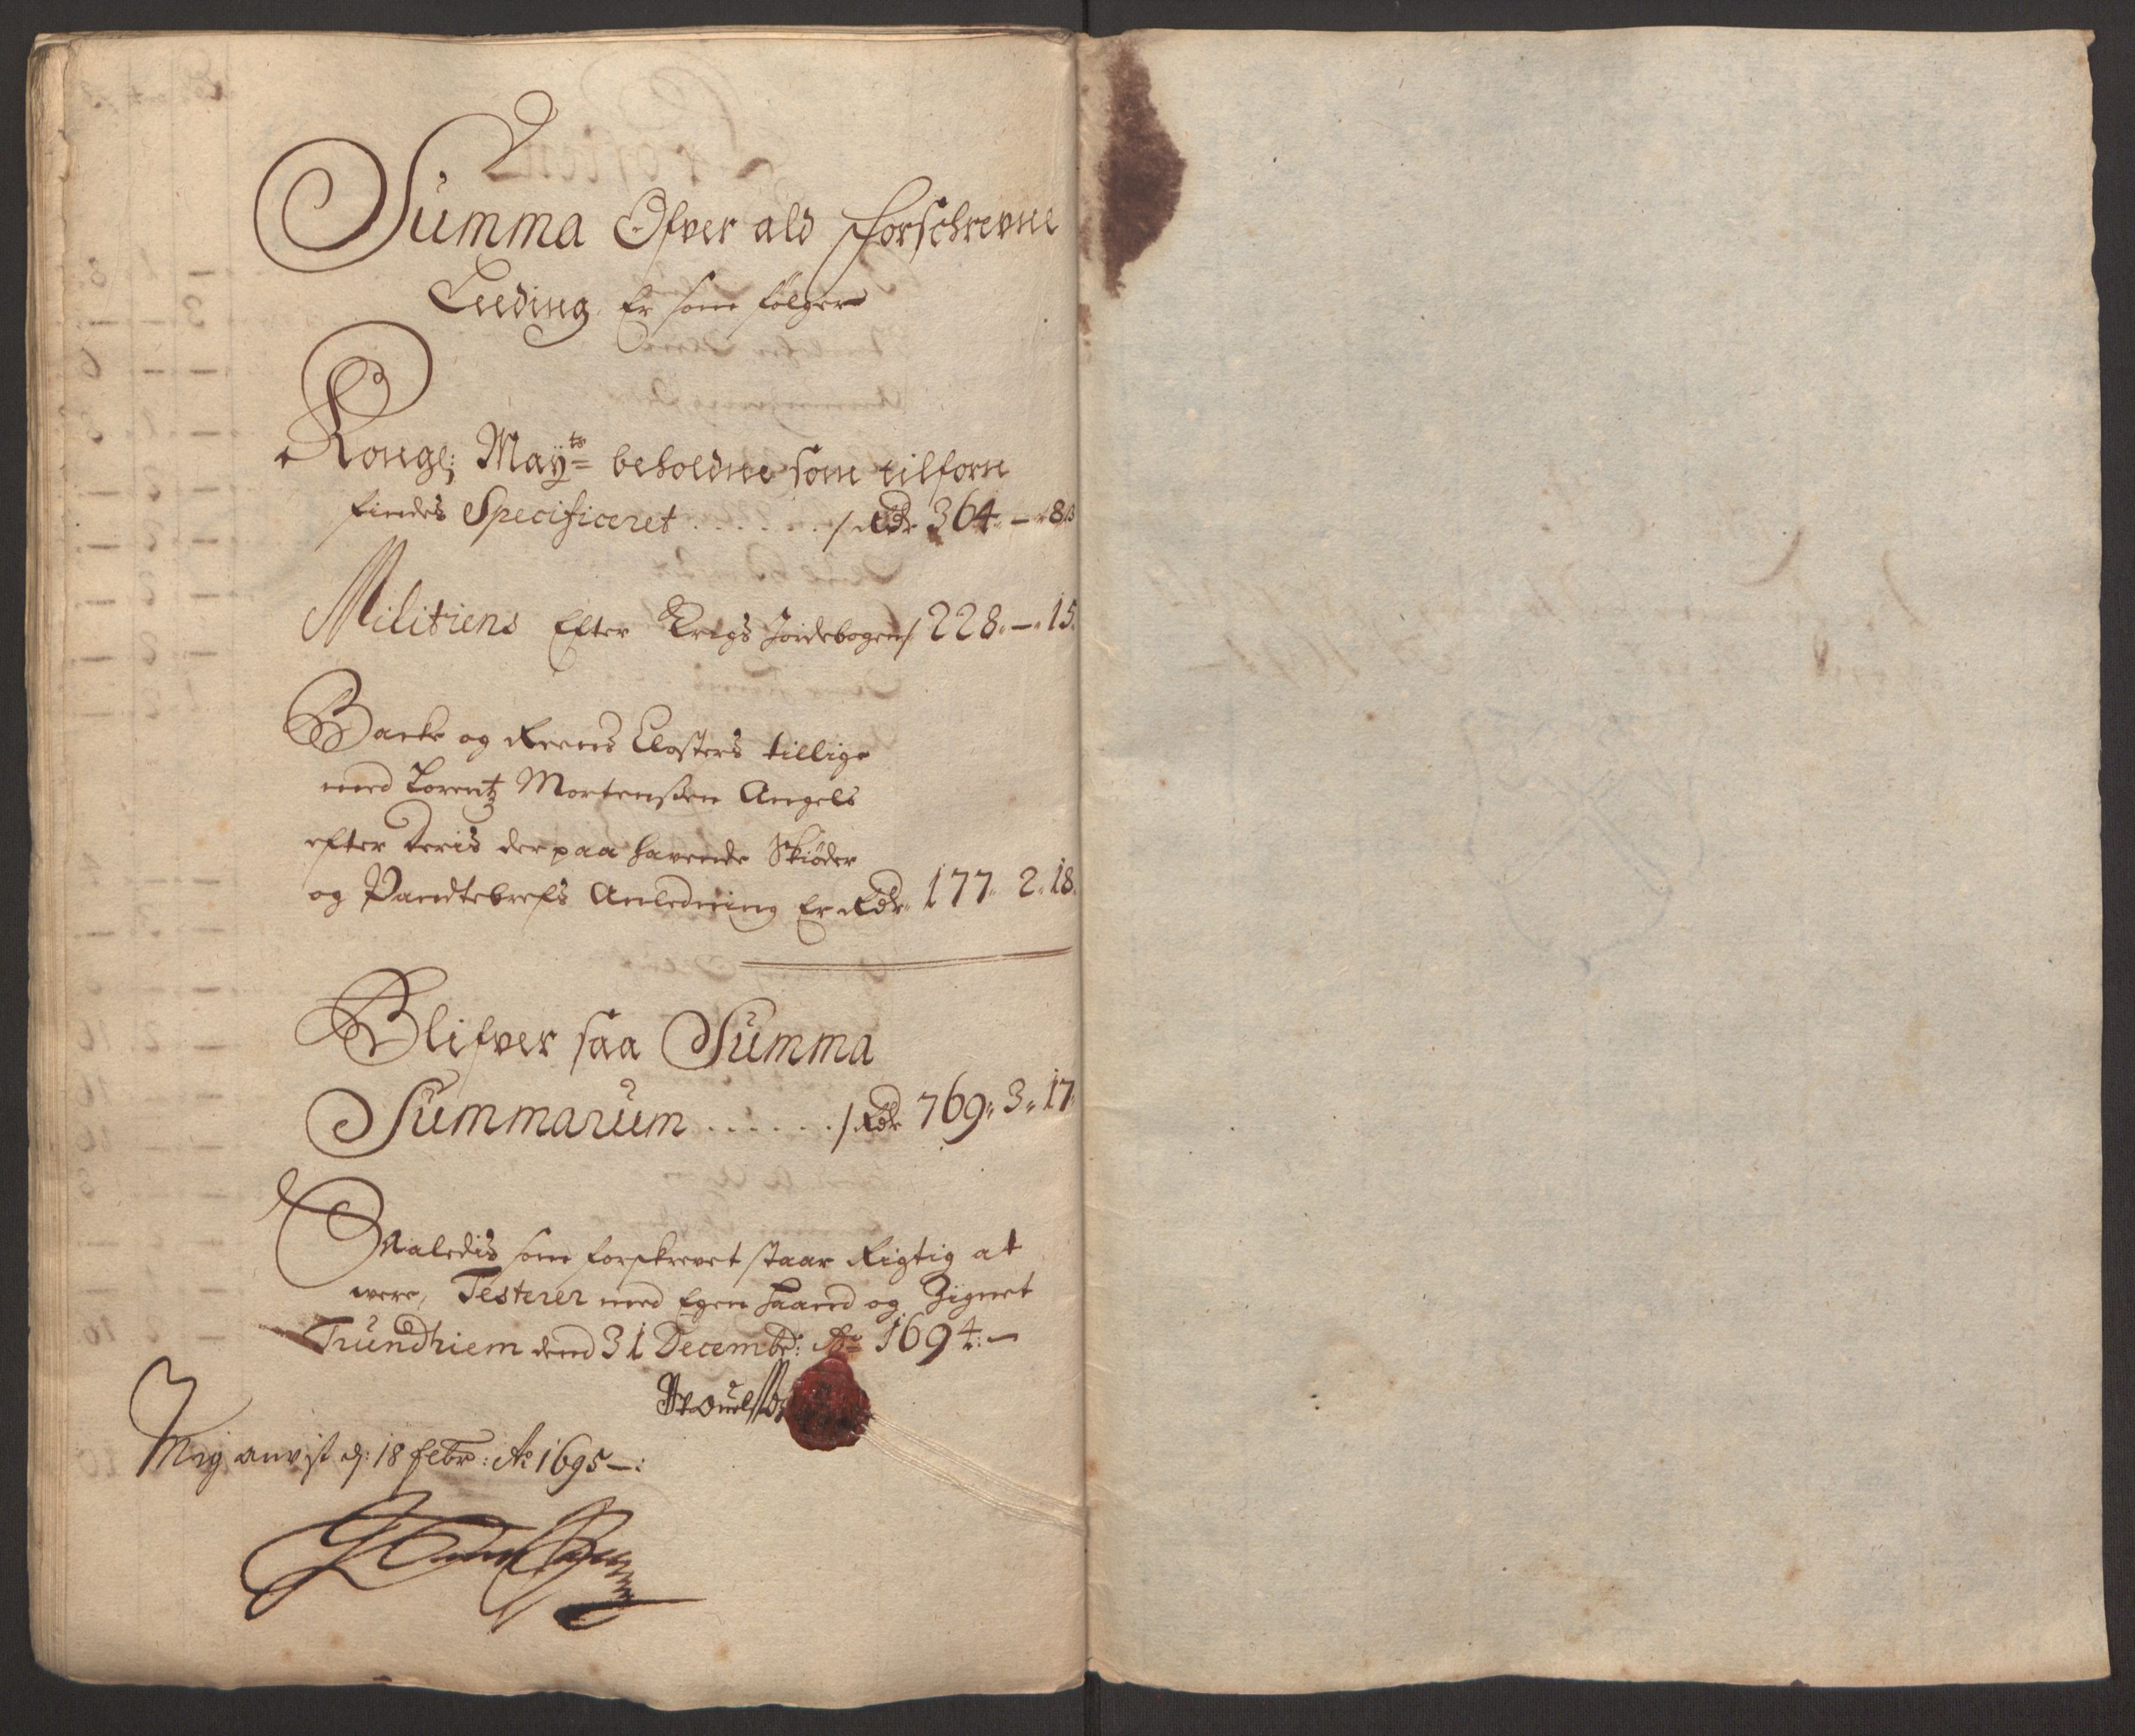 Summa Ofver ald forschrevne
Leeding Er som følger
Kongl: Maÿts beholdne som tilforn
findes Specificeret . . . . . . / Rdr 364. — 8 ß
Militiens Efter Krigs Jordebogen / 228. —. 15.
Backe og Reens Closters tillige
med Lorentz Mortenssen Angels
efter deris der paa havende Skiøder
og Pandtebrefs Anledning Er Rdr. 177. 2. 18.
Blifver saa Summa
Summarum . . . . . . / Rdr 769. 3. 17.
Saaledis som forskrevet staar Rigtig at
were, Testerer med Egen Haand og Zignet
Trundhiem dend 31 Decembr: Ao 1694. —
Mig anvist d: 18 febr: Ao 1695 —: